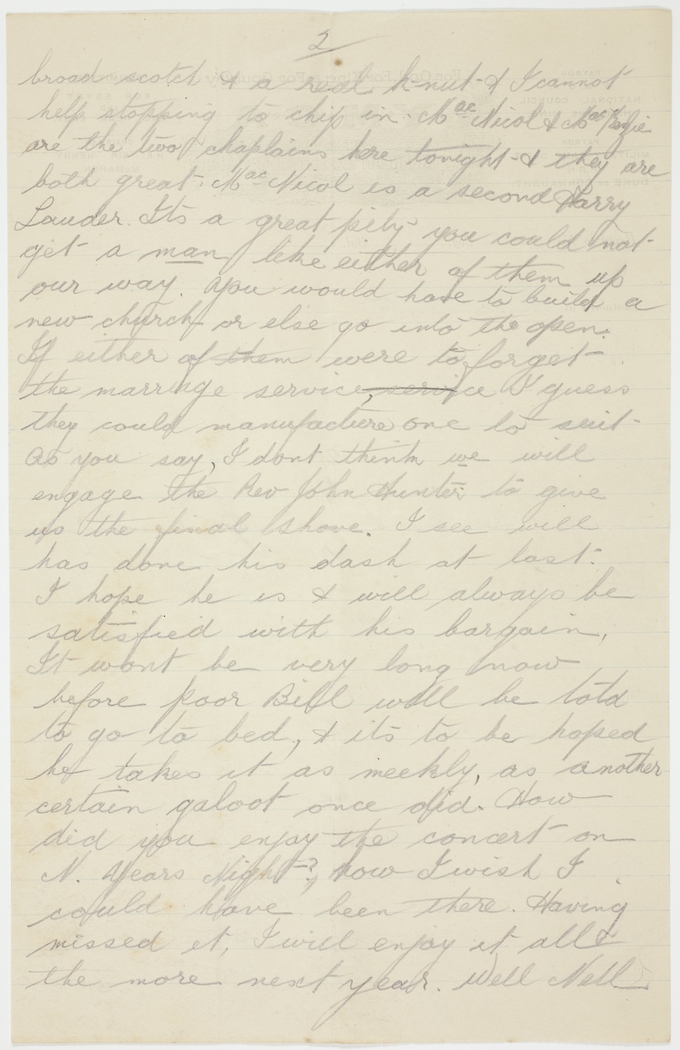 2
broad scotch & a real k-nut & I cannot
help stopping to chip in. Mac Nicol &
are the two chaplains here tonight & they are
both great. Mac Nicol is a second Harry
Lauder. Its a great pity you could not
get a man like either of them up
our way. You would have to build a
new church or else go into the open.
If either of them were to forget
the marriage service, service I guess
they could manufacture one to suit
As you say, I dont think we will
engage the Rev John Hunter to give
us the final shove. I see will
has done his dash at last.
I hope he is & will always be
satisfied with his bargain,
It wont be very long now
before poor Bill will be told
to go to bed, & its to be hoped
he takes it as meekly, as another
certain galoot once did. How
did you enjoy the concert on
N. Years Night? how I wish I
could have been there. Having
missed it, I will enjoy it all
the more next year. Well Nell